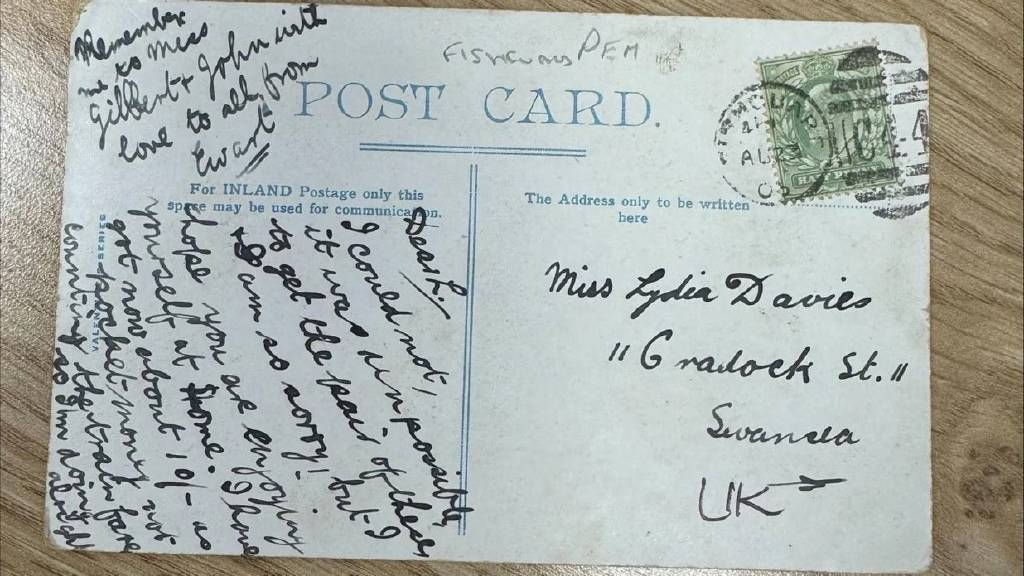 Remember
me to Miss
Gilbert & John with
love to all from
Ewart
PEM
POST CARD.
For INLAND Postage only this
space may be used for communication.
The Address only to be written
here
Dear L.
I could not,
it was impossible,
to get the pair of these,
but I
& I am so sorry!
I hope you are enjoying
yourself at home. I have
got now about 10/- as
pocket-money not
counting the train fare
so I'm doing
alright
Miss Lydia Davies
"Cradock St."
Swansea
UK
AU